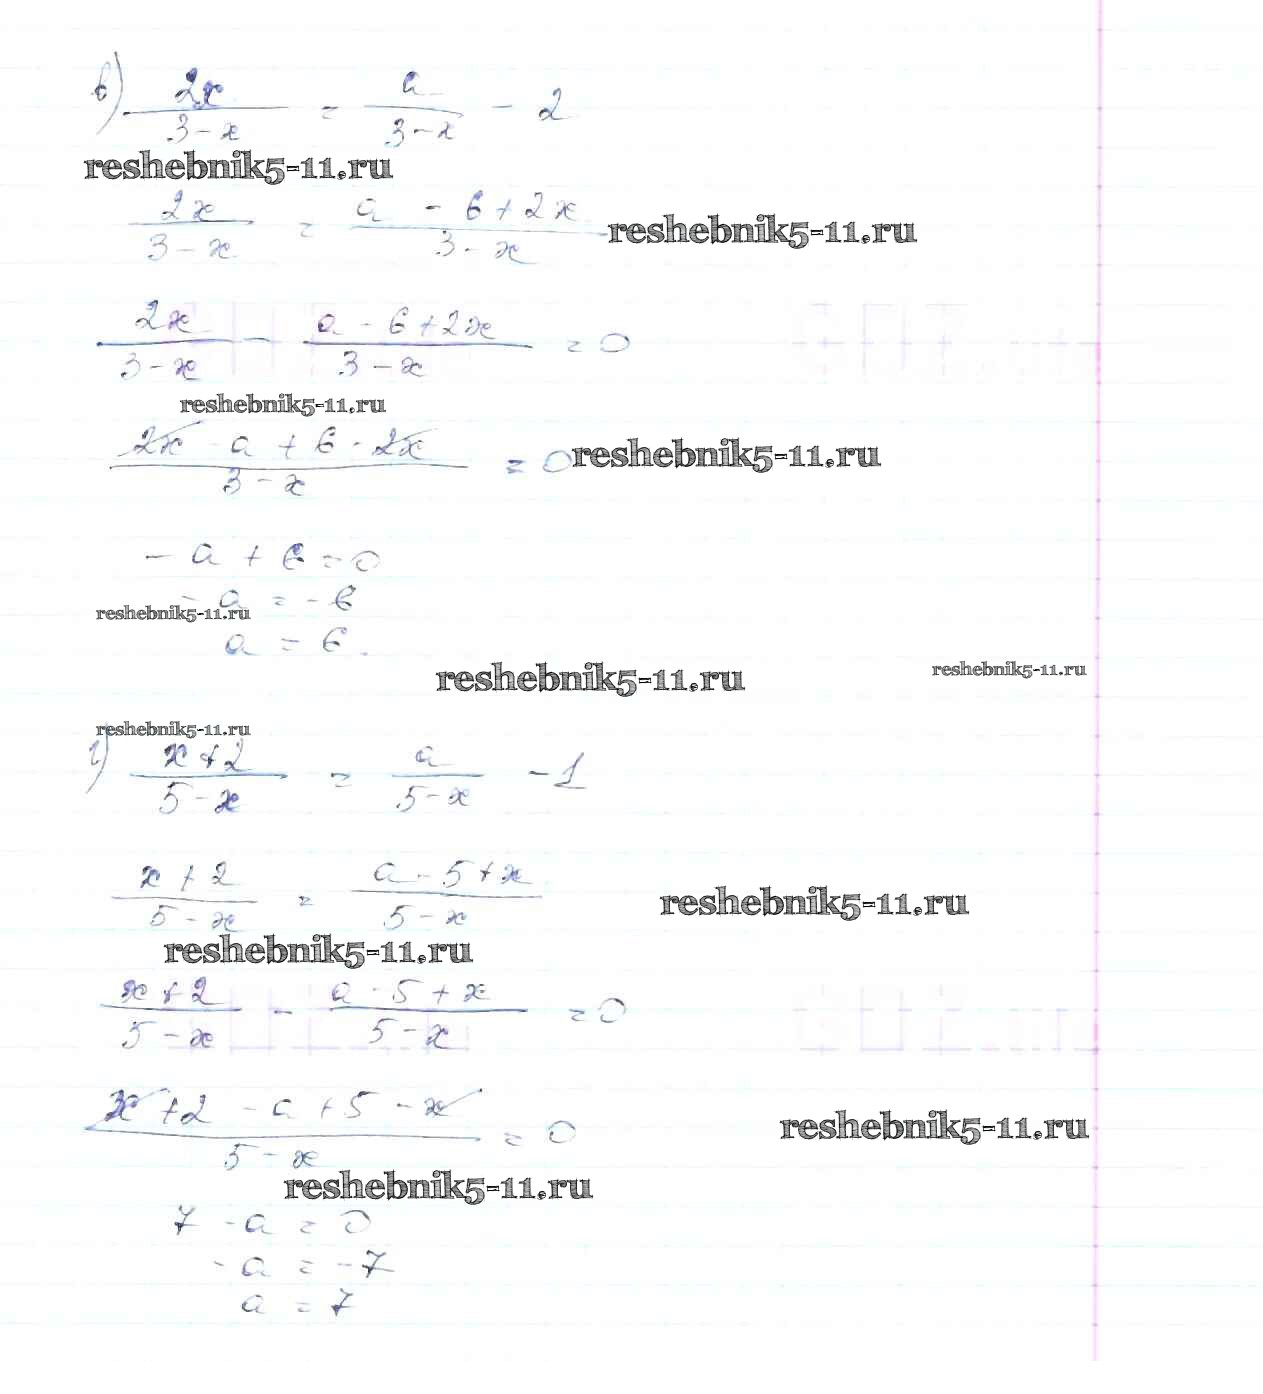 в) 2x/(3-x) = a/(3-x) - 2
reshebnik5-11.ru
2x/(3-x) = (a - 6 + 2x)/(3-x)
reshebnik5-11.ru
2x/(3-x) - (a - 6 + 2x)/(3-x) = 0
reshebnik5-11.ru
(2x - a + 6 - 2x)/(3-x) = 0
reshebnik5-11.ru
- a + 6 = 0
- a = - 6
reshebnik5-11.ru
a = 6.
reshebnik5-11.ru
reshebnik5-11.ru
reshebnik5-11.ru
г) (x+2)/(5-x) = a/(5-x) - 1
(x+2)/(5-x) = (a - 5 + x)/(5-x)
reshebnik5-11.ru
reshebnik5-11.ru
(x+2)/(5-x) - (a - 5 + x)/(5-x) = 0
(x + 2 - a + 5 - x)/(5-x) = 0
reshebnik5-11.ru
reshebnik5-11.ru
7 - a = 0
- a = - 7
a = 7